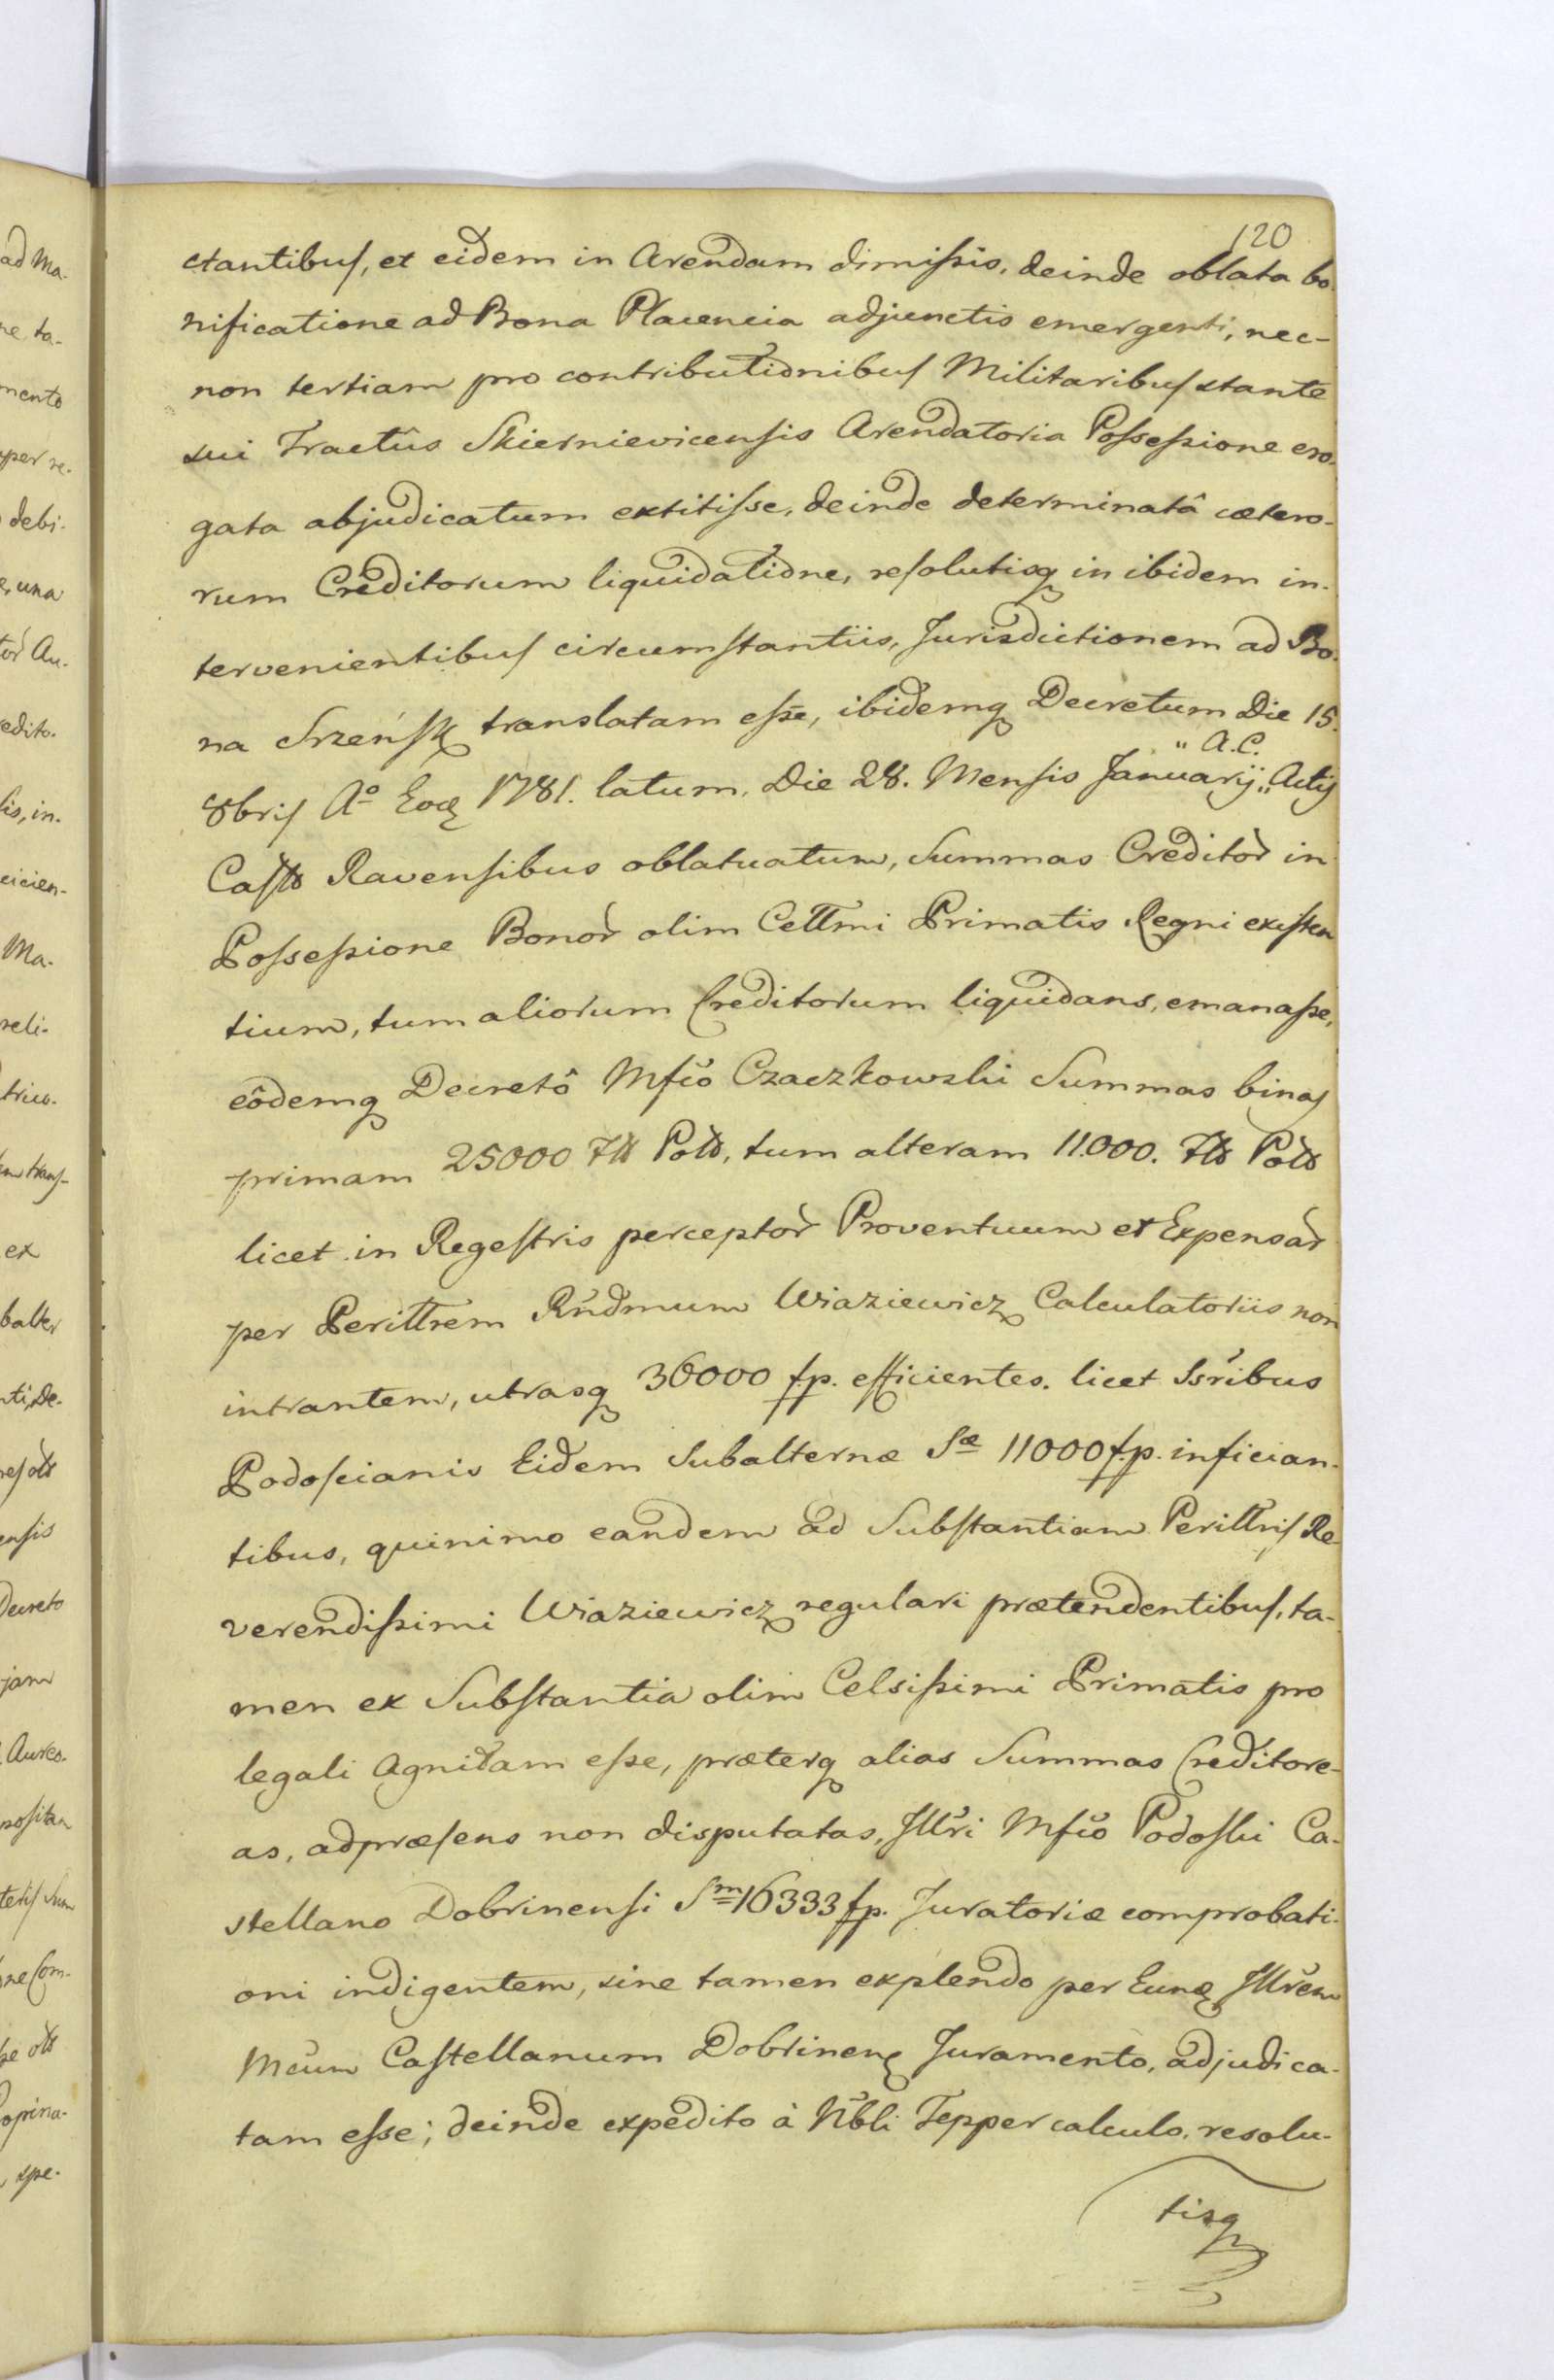 120
ctantibus, et eidem in Arendam dimissis, deinde oblata bo-
nificatione ad Bona Placencia adjunctis emergenti, nec-
non tertiam pro contributionibus Militaribus stante
sui Tractûs Skiernievicensis Arendatoria Possessione ero-
gata abjudicatum extitisse, deinde determinatâ cætero-
rum Creditorum liquidatione, resolutisq in ibidem in-
tervenientibus circumstantiis, Jurisdictionem ad Bo-
na Srzeńsk translatam esse, ibidemq Decretum Die 15.
8bris Aº Eoq 1781. latum, Die 28. Mensis Januarij " A.C. " Actis
Castr Ravensibus oblatuatum, Summas Creditor in
Possessione Bonor olim Cellmi Primatis Regni existen
tium, tum aliorum Creditorum liquidans, emanasse,
eôdemq Decretô Mfco Czaczkowski Summas binas
primam 25000 Fll Pold, tum alteram 11.000. Fll Pold
licet in Regestris perceptor Proventuum et Expensar
per Perillrem Rndmum Wiaziewicz Calculatoriis non
intrantem, utrasq 36000 fp. efficientes. licet Ssribus
Podoscianis Eidem Subalternæ Sæ 11000 fp. infician-
tibus, quinimo eandem ad Substantiam Perillris Re-
verendissimi Wiaziewicz regulari prætendentibus, ta-
men ex Substantia olim Celsissimi Primatis pro
legali Agnitam esse, præterq alias Summas Creditore-
as, adpræsens non disputatas, Jllri Mfco Podoski Ca-
stellano Dobrinensi Sm 16333 fp. Juratoriæ comprobati-
oni indigentem, sine tamen explendo per Eunq Jllrem
Mcum Castellanum Dobrinenq Juramento, adjudica-
tam esse; deinde expedito à Nbli Tepper calculo, resolu-
tisq